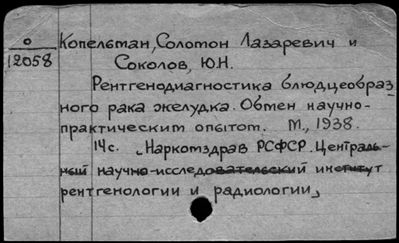 0
12058
Копельман, Соломон Лазаревич и
Соколов, Ю.Н.
Рентгенодиагностика блюдцеобраз-
ного рака желудка. Обмен научно-
практическим опытом. М., 1938.
14с. „Наркомздрав РСФСР. Централь-
ный научно-исследовательский институт
рентгенологии и радиологии„